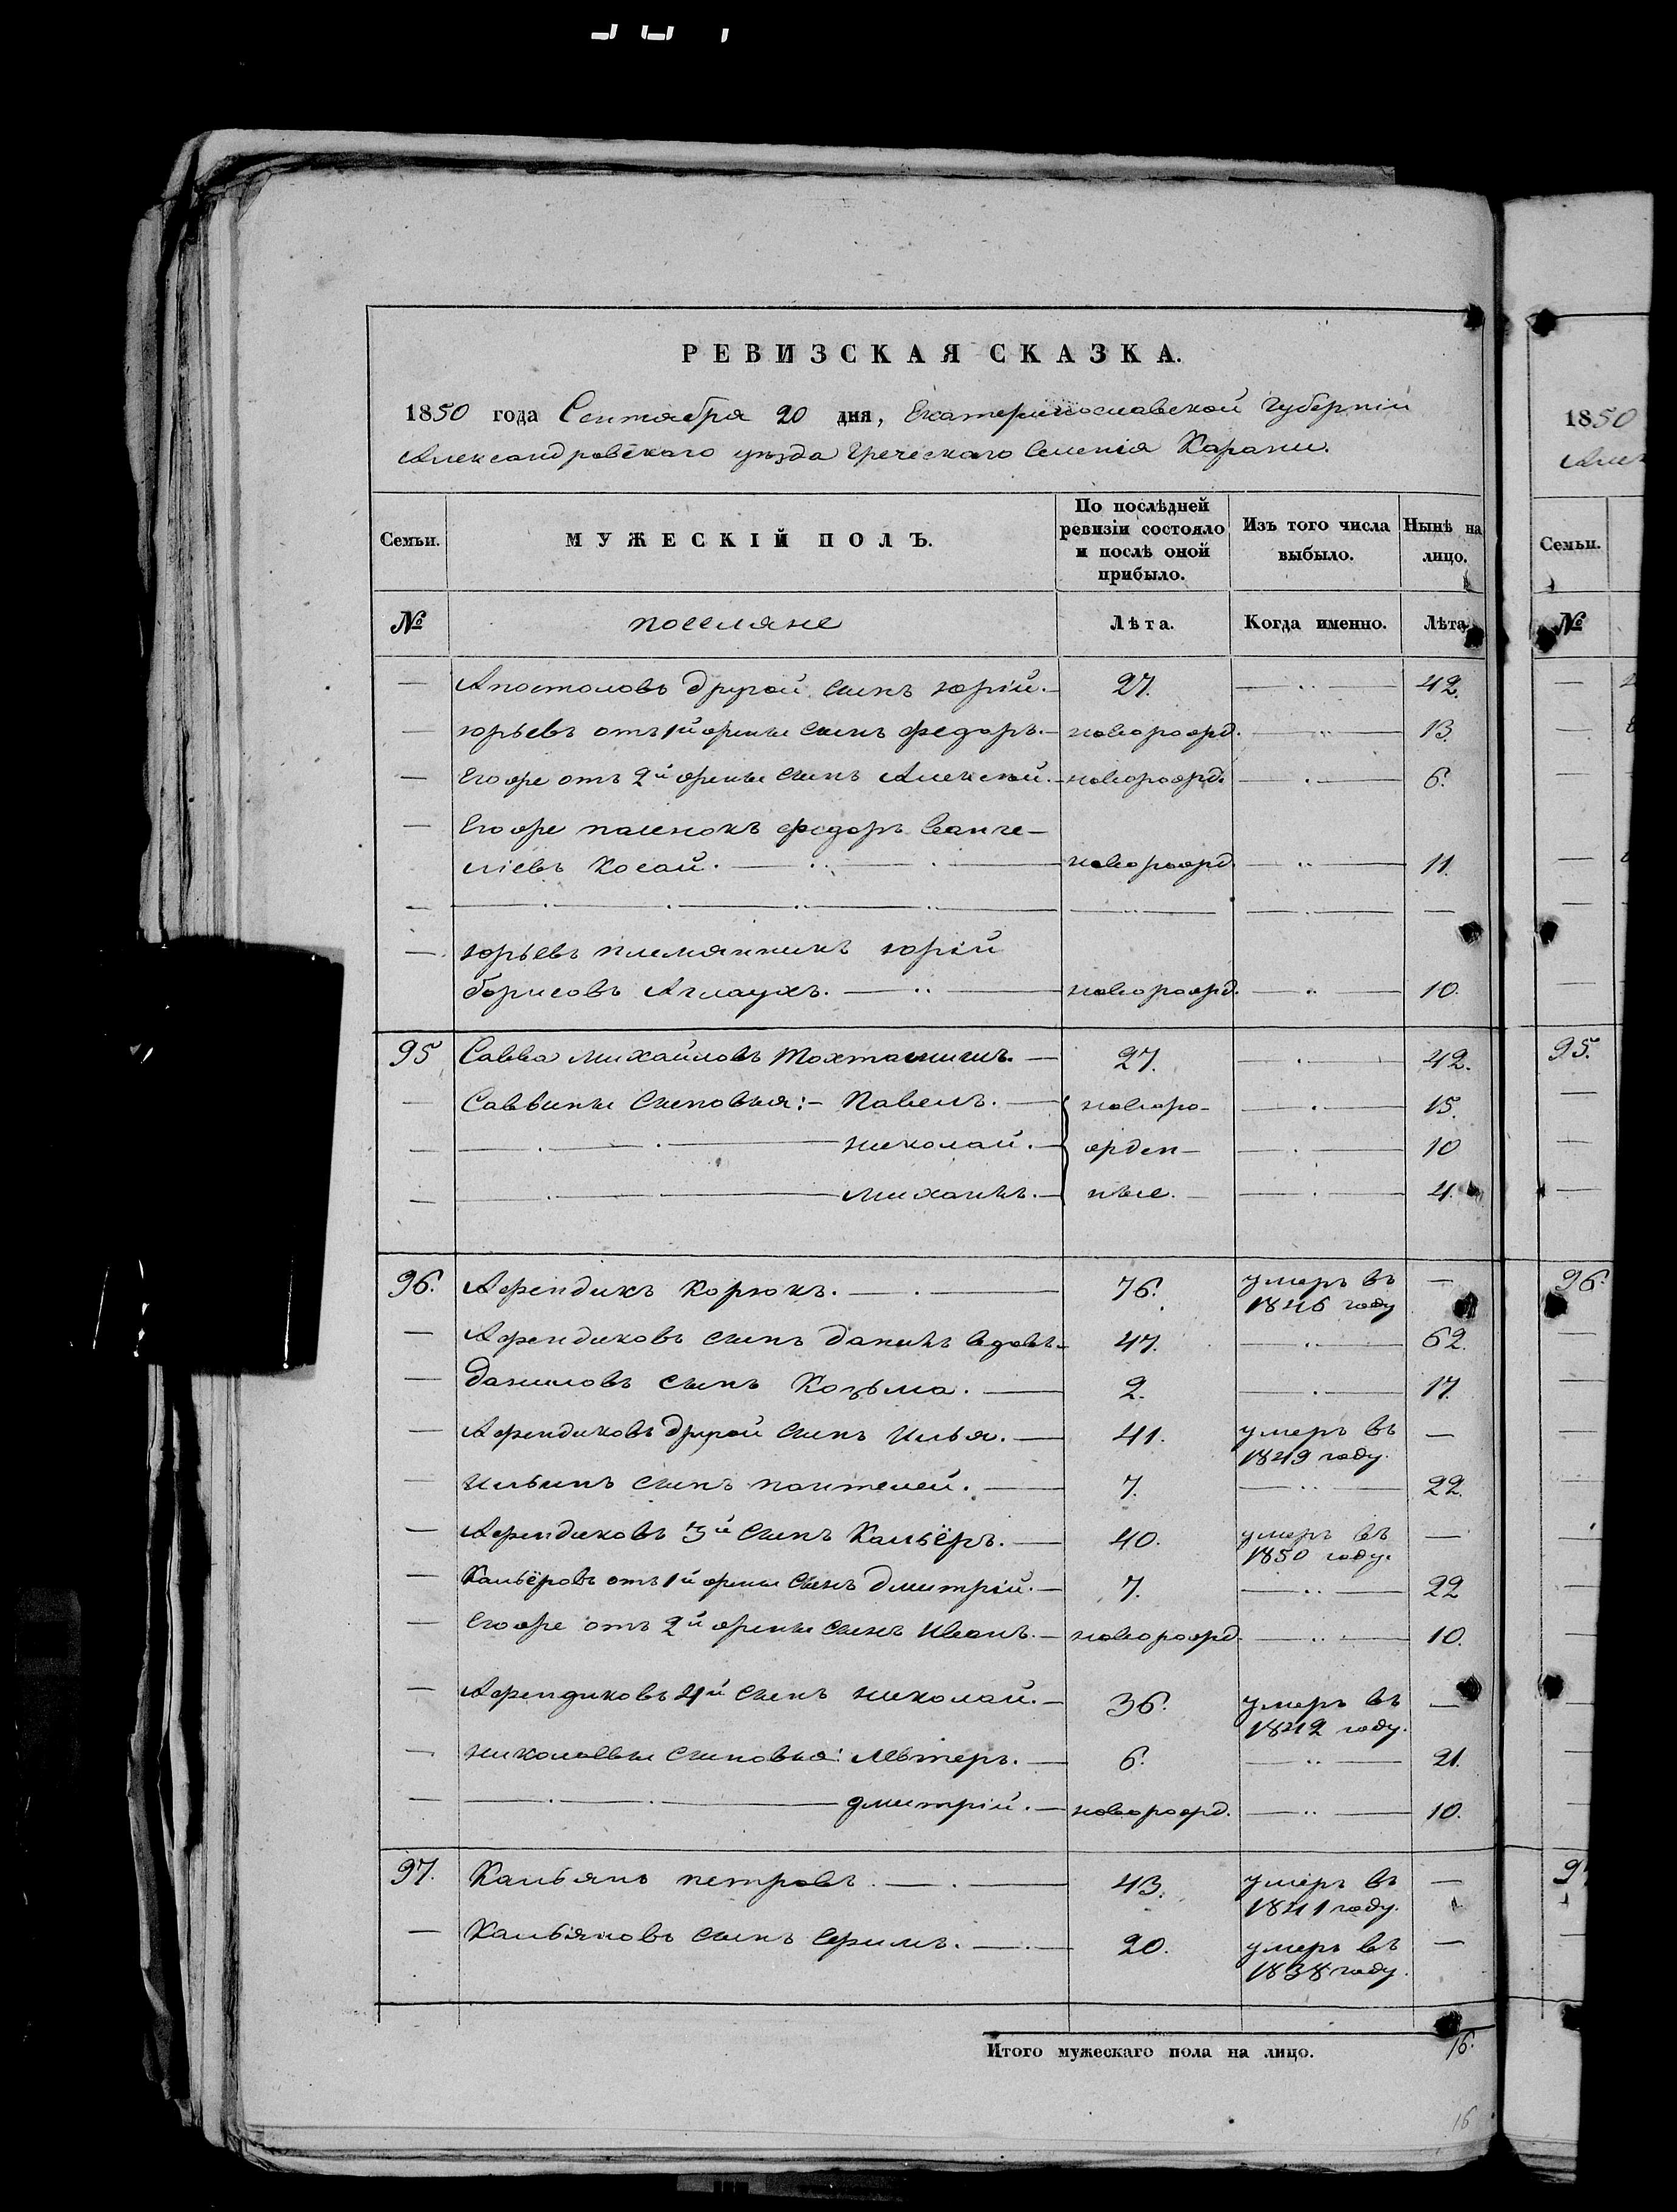 РЕВИЗСКАЯ СКАЗКА.
1850 года Сентября 20 дня, Екатеринославской Губерніи
Александровскаго уѣзда Греческаго Селенія Карани.
Семьи. МУЖЕСКІЙ ПОЛЪ. По послѣдней ревизіи состояло и послѣ оной прибыло. Изъ того числа выбыло. Нынѣ на лицо.
№ поселяне Лѣта. Когда именно. Лѣта
— Апостоловъ другой сынъ Юрій. — 27. — 42.
— Юрьевъ отъ 1й жены сынъ Федоръ. — новорожд. — 13.
— Его же отъ 2й жены сынъ Алексѣй. — новорожд. — 6.
— Его же пасенокъ Федоръ Еванге-
ліевъ Косай. — новорожд. — 11.
— Юрьевъ племянникъ Юрій
Борисовъ Аглаухъ. — новорожд. — 10.
95 Савва Михайловъ Тохтамишъ. — 27. — 42.
— Саввины сыновья: — Павелъ. — новоро- — 15.
— Николай. — жден- — 10
— Михаилъ. — ные. — 4.
96. Афендикъ Корюкъ. — 76. умеръ въ —
1846 году
— Афендиковъ сынъ Данилъ вдовъ. — 47. — 62.
— Даниловъ сынъ Козьма. — 2. — 17.
— Афендиковъ другой сынъ Илья. — 41. умеръ въ —
1849 году.
— Ильинъ сынъ Пантелей. — 7. — 22.
— Афендиковъ 3й сынъ Кальёръ. — 40. умеръ въ —
1850 году.
— Кальёровъ отъ 1й жены сынъ Дмитрій. — 7. — 22
— Его же отъ 2й жены сынъ Иванъ. — новорожд. — 10.
— Афендиковъ 4й сынъ Николай. — 36. умеръ въ —
1842 году.
— Николаевы сыновья: Левтеръ. — 6. — 21.
— Дмитрій. — новорожд. — 10.
97. Кальянъ Петровъ. — 43. умеръ въ —
1841 году.
— Кальяновъ сынъ Ефимъ. — 20. умеръ въ —
1838 году.
Итого мужескаго пола на лицо. 16.
16
1850
Семьи.
№
95.
96.